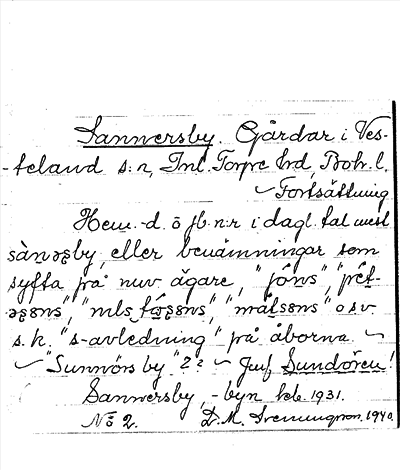 Sannersby. Gårdar i Ves-
-teland s:n, Inl. Torpe hrd, Boh. l.
Fortsättning
Hem.-d. ö jb. n:r i dagl. tal mest
sànəʂby, eller benämningar som
syfta på nuv ägare, "jôns", "pét-
əʂəns", "mats əns" o sv.
s.k. "s-avledning" på åborna.
"Sunnörs by"? Jmf Sundören!
Sannersby, -byn feb. 1931.
No 2. D. M. Svenningson. 1940.